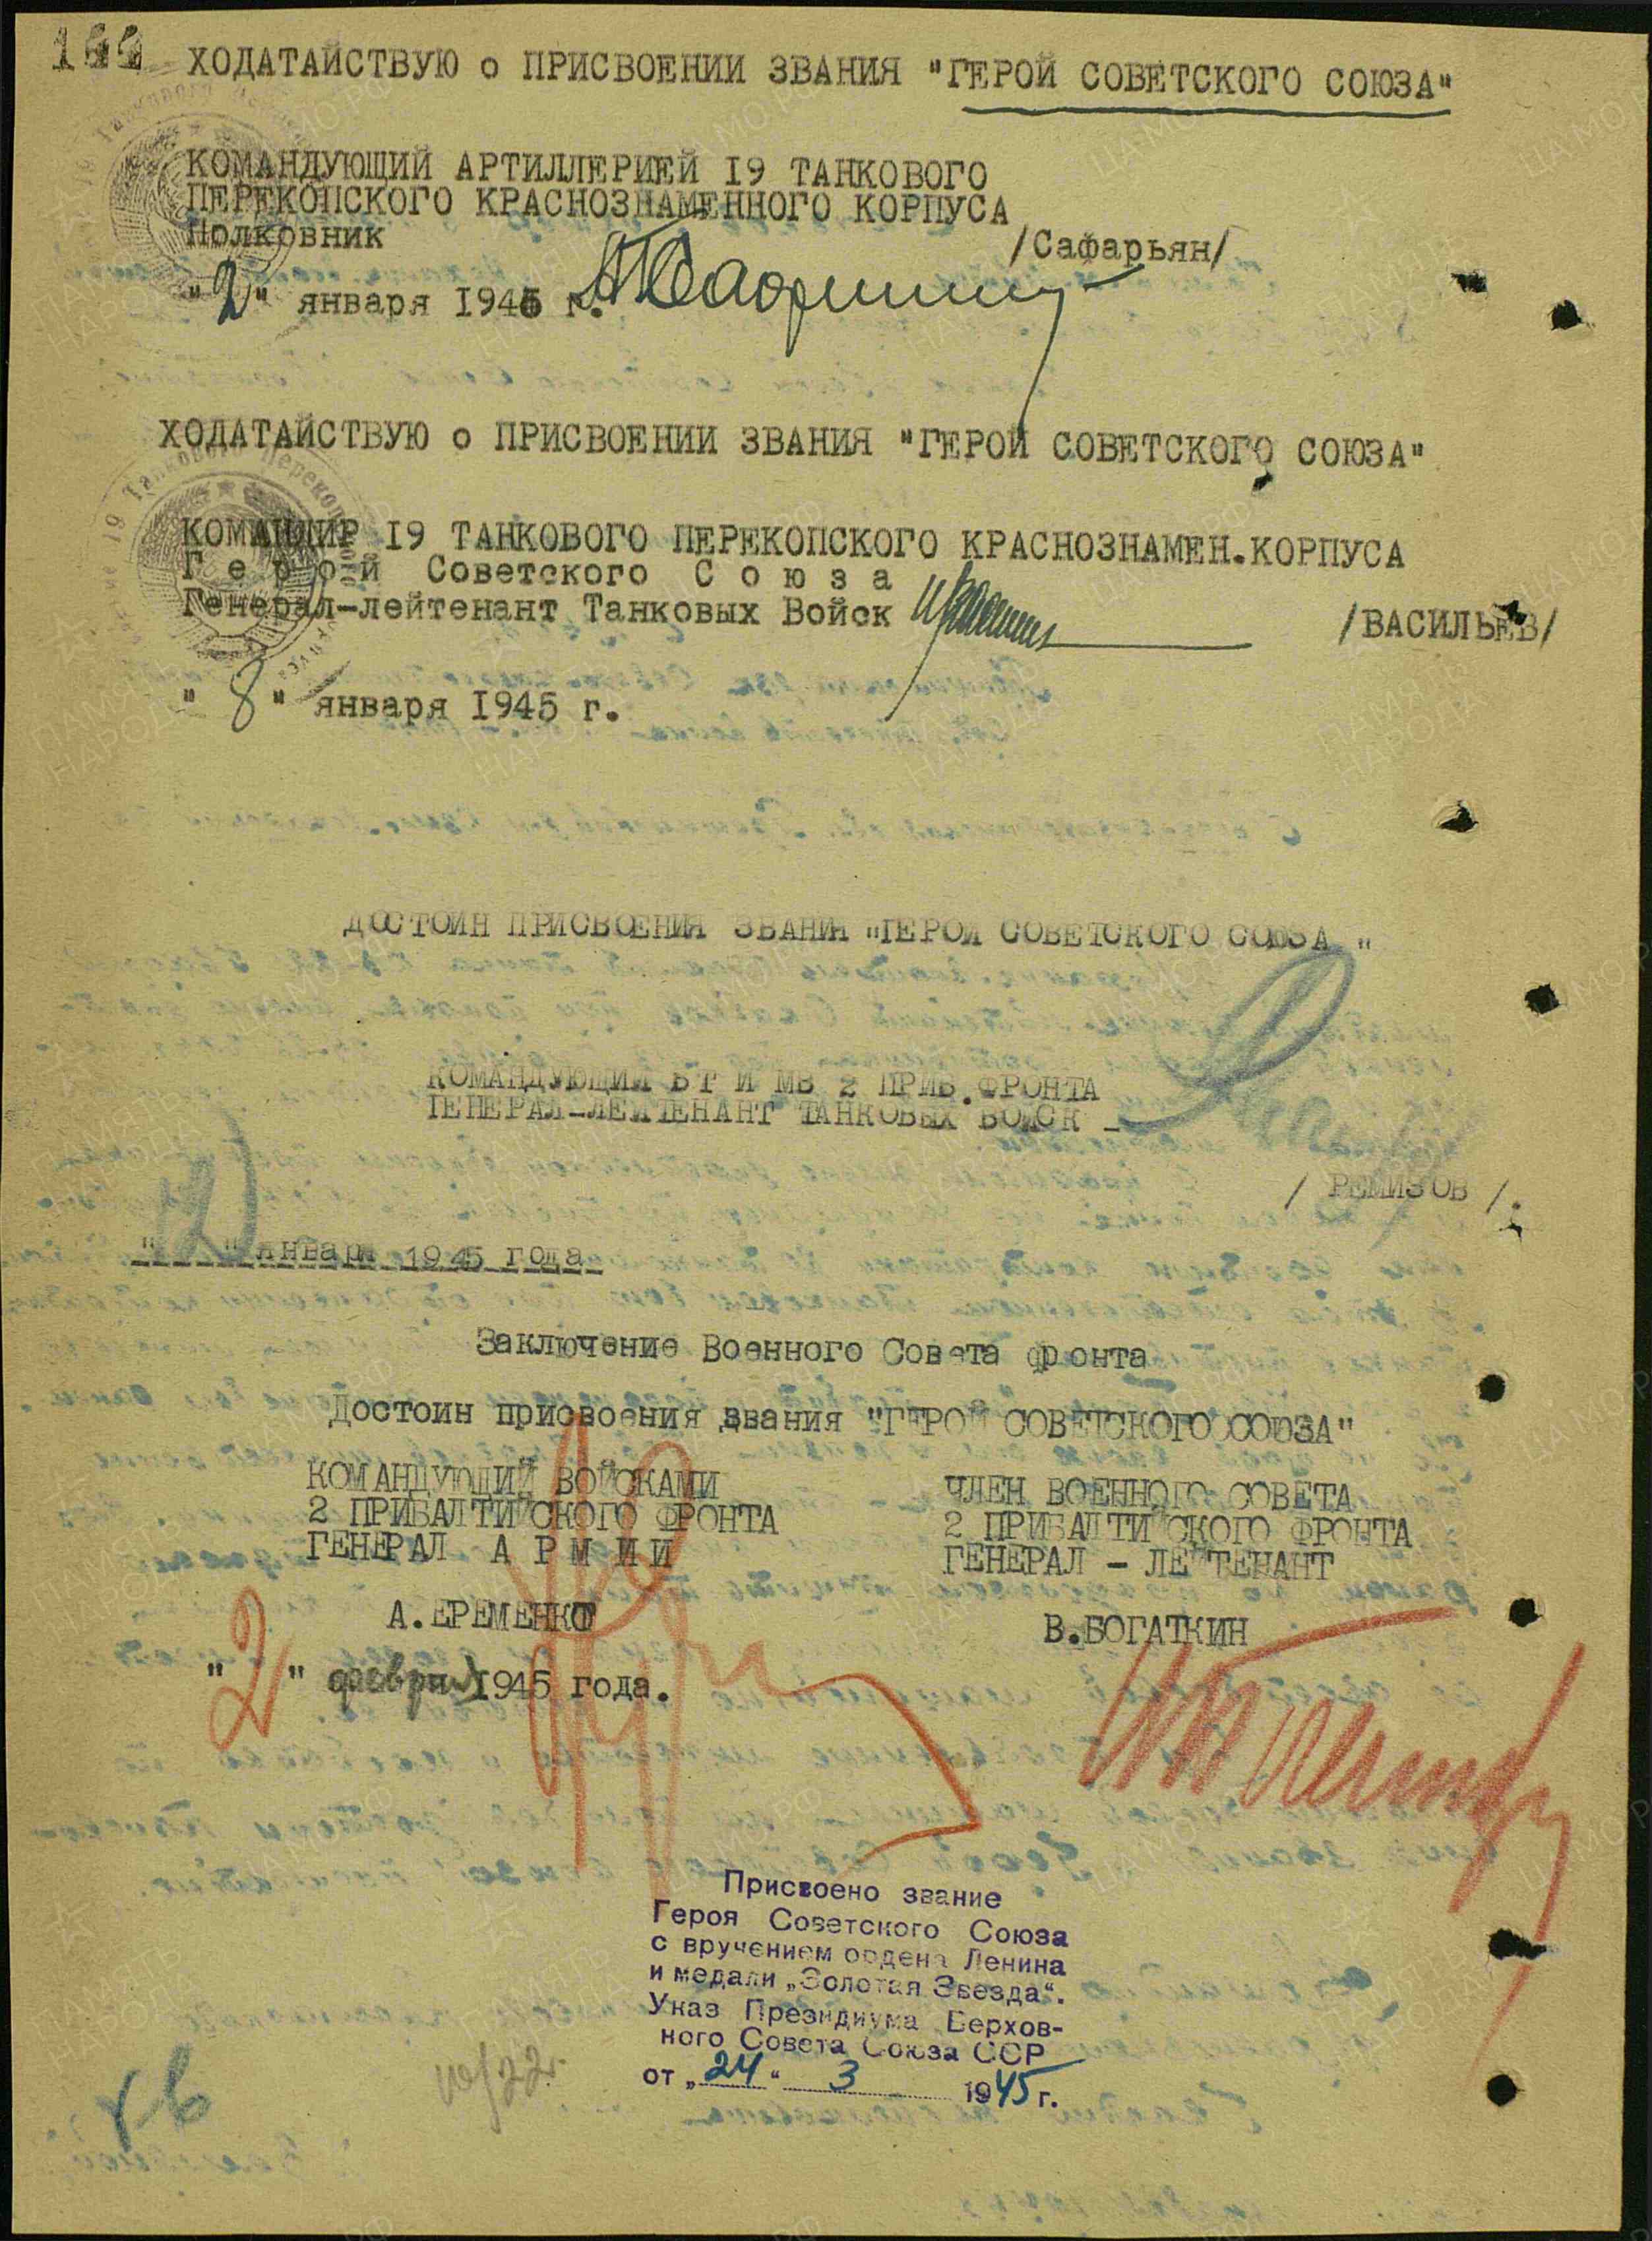 ХОДАТАЙСТВУЮ о ПРИСВОЕНИИ ЗВАНИЯ "ГЕРОЙ СОВЕТСКОГО СОЮЗА"
КОМАНДУЮЩИЙ АРТИЛЛЕРИЕЙ I9 ТАНКОВОГО
ПЕРЕКОПСКОГО КРАСНОЗНАМЕННОГО КОРПУСА
Полковник
/Сафарьян/
"2" января 1945 г.
ХОДАТАЙСТВУЮ о ПРИСВОЕНИИ ЗВАНИЯ "ГЕРОЙ СОВЕТСКОГО СОЮЗА"
КОМАНДИР I9 ТАНКОВОГО ПЕРЕКОПСКОГО КРАСНОЗНАМЕН.КОРПУСА
Герой Советского Союза
Генерал-лейтенант Танковых Войск
/ВАСИЛЬЕВ/
"8" января I945 г.
ДОСТОИН ПРИСВОЕНИЯ ЗВАНИЯ "ГЕРОЙ СОВЕТСКОГО СОЮЗА"
КОМАНДУЮЩИЙ БТ И МВ 2 ПРИБ.ФРОНТА
ГЕНЕРАЛ-ЛЕЙТЕНАНТ ТАНКОВЫХ ВОЙСК
/ РЕМИЗОВ /.
" " января 1945 года
Заключение Военного Совета фронта
Достоин присвоения звания "ГЕРОЙ СОВЕТСКОГО СОЮЗА"
КОМАНДУЮЩИЙ ВОЙСКАМИ
2 ПРИБАЛТИЙСКОГО ФРОНТА
ГЕНЕРАЛ АРМИИ
А.ЕРЕМЕНКО
ЧЛЕН ВОЕННОГО СОВЕТА
2 ПРИБАЛТИЙСКОГО ФРОНТА
ГЕНЕРАЛ - ЛЕЙТЕНАНТ
В.БОГАТКИН
"2" февраля 1945 года.
Присвоено звание
Героя Советского Союза
с вручением ордена Ленина
и медали „Золотая Звезда“.
Указ Президиума Верхов-
ного Совета Союза ССР
от „24“ 3 1945 г.